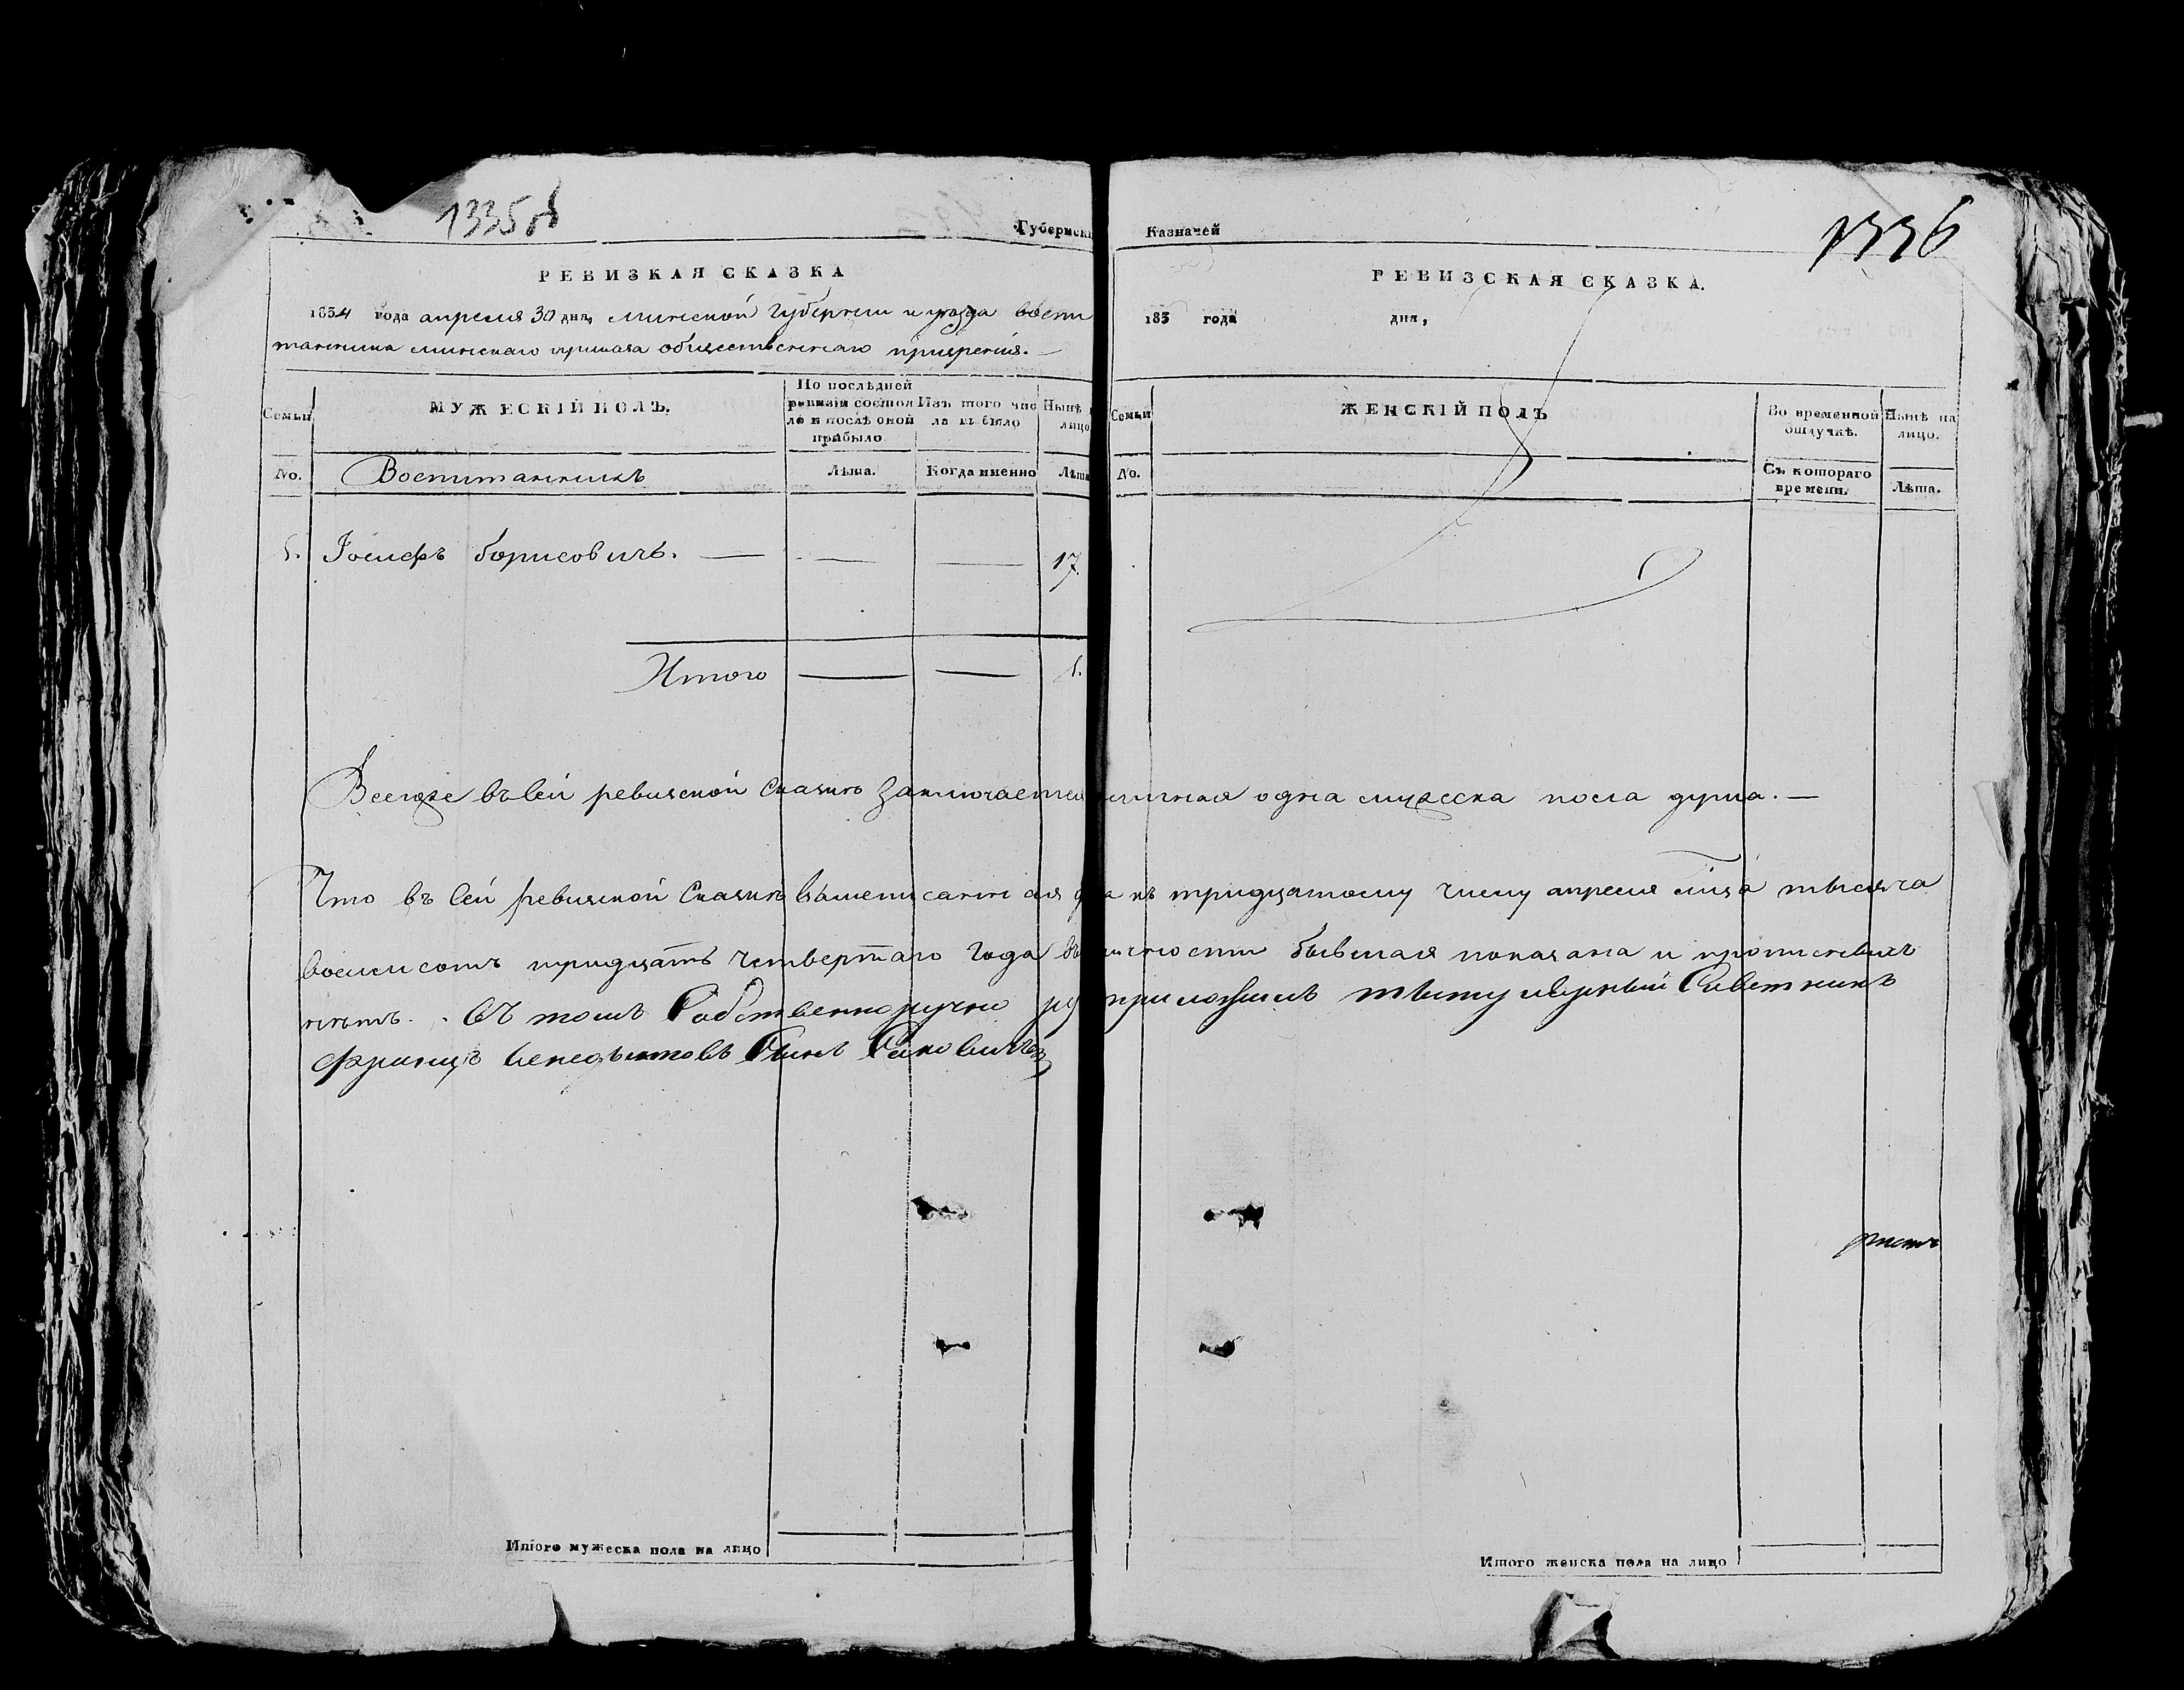 1335об
Губернскі
РЕВИЗКАЯ СКАЗКА
1834 года апреля 30 дня, Минской Губернии и уезда воспи
танника минскаго приказа общественнаго призрения.—
Семьи
МУЖЕСКІЙ ПОЛЪ.
По послѣдней ревизіи состоя
ло и послѣ оной прибыло
Изъ того чис
ла выбыло
Нынѣ
лицо
No.
Воспитанникъ
Лѣта.
Когда именно
Лѣта
1. Іосифъ борисовичъ. — — — 17.
Итого — — 1.
Казначей
1336
РЕВИЗСКАЯ СКАЗКА.
183 года дня,
Семьи
ЖЕНСКІЙ ПОЛЪ
Во временной
отлучкѣ.
Нынѣ на
лицо.
No.
Съ котораго
времени.
Лѣта.
Всегоже въ сей ревизской Сказкѣ заключается одна мужеска пола душа.—
Что въ сей ревизской Сказкѣ вышеписанная къ тридцатому числу апреля мца тысяча
восемсотъ тридцать четвертаго года бывшая показана и прописныхъ
нетъ. въ томъ Собственноручно приложилъ титулярный Советникъ
Францъ Сынъ
Итого мужеска пола на лицо
Итого женска пола на лицо